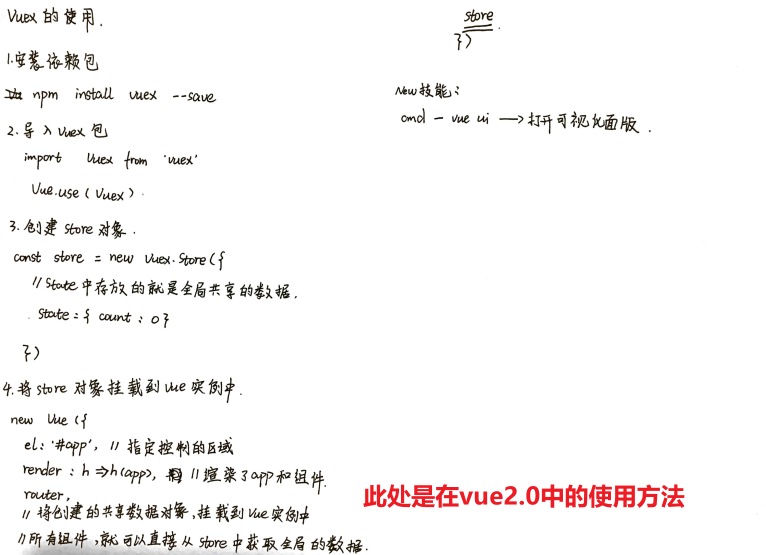 Vuex 的使用.
1.安装依赖包
npm install vuex --save
2.导入 Vuex 包
import Vuex from 'vuex'
Vue.use(Vuex).
3.创建 store 对象.
const store = new Vuex.Store({
//State中存放的就是全局共享的数据.
state:{ count:0}
})
4.将store 对象挂载到 vue 实例中.
new Vue({
el:'#app', // 指定控制的区域
render:h=>h(app), //渲染了app和组件.
router,
// 将创建的共享数据对象,挂载到 Vue 实例中
//所有组件,就可以直接从 store 中获取全局的数据.
store
})
New技能:
cmd - vue ui → 打开可视化面版.
此处是在vue2.0中的使用方法